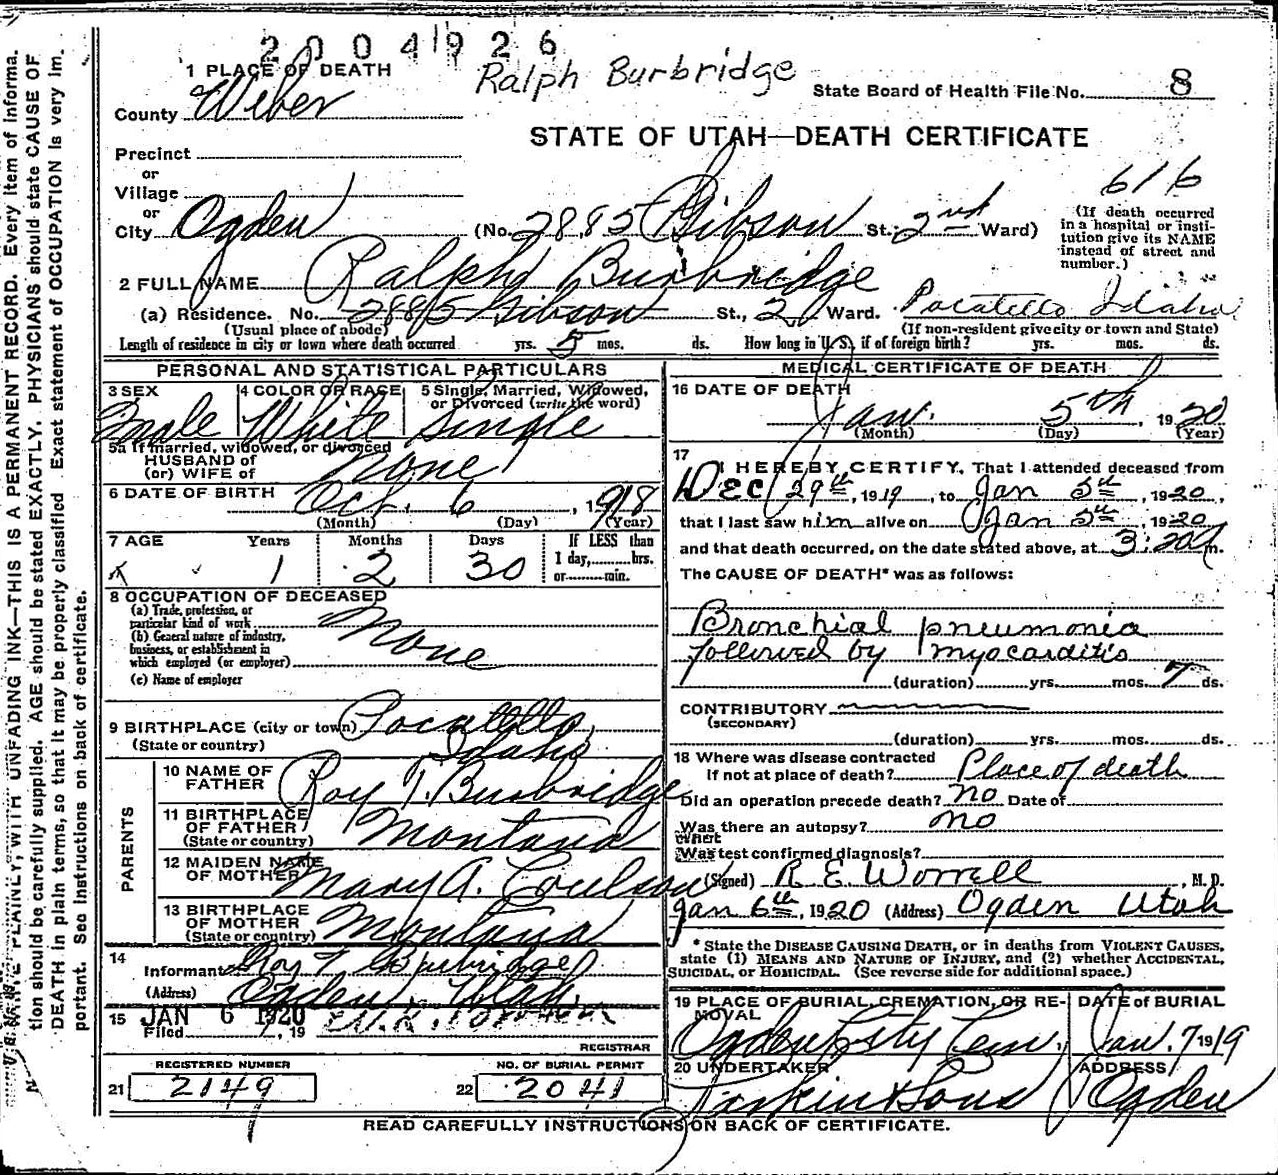 2004926
Ralph Burbridge
1 PLACE OF DEATH
State Board of Health File No. 8
County Weber
STATE OF UTAH—DEATH CERTIFICATE
Precinct
or
Village
616
or
City Ogden (No. 2885 Gibson St.; 2nd Ward)
(If death occurred in a hospital or insti-
tution give its NAME
instead of street and
number.)
2 FULL NAME Ralph Burbridge
(a) Residence. No. 2885 Gibson St., 2 Ward. Pocatello Idaho
(Usual place of abode) (If non-resident give city or town and State)
Length of residence in city or town where death occurred yrs. 5 mos. ds. How long in U. S., if of foreign birth? yrs. mos. ds.
PERSONAL AND STATISTICAL PARTICULARS
3 SEX Male
4 COLOR OR RACE White
5 Single, Married, Widowed,
or Divorced (write the word)
Single
5a If married, widowed, or divorced
HUSBAND of
(or) WIFE of None
6 DATE OF BIRTH Oct. 6, 1918
(Month) (Day) (Year)
7 AGE Years Months Days If LESS than
1 2 30 1 day, hrs.
or min.
8 OCCUPATION OF DECEASED
(a) Trade, profession, or
particular kind of work None
(b) General nature of industry,
business, or establishment in
which employed (or employer) None
(c) Name of employer
9 BIRTHPLACE (city or town) Pocatello,
(State or country) Idaho
PARENTS
10 NAME OF
FATHER Roy T. Burbridge
11 BIRTHPLACE
OF FATHER
(State or country) Montana
12 MAIDEN NAME
OF MOTHER Mary A. Coulson
13 BIRTHPLACE
OF MOTHER
(State or country) Montana
14
Informant Roy T Burbridge
(Address) Ogden, Utah.
15 JAN 6 1920
Filed , 19
REGISTRAR
REGISTERED NUMBER NO. OF BURIAL PERMIT
21 2149 22 2041
MEDICAL CERTIFICATE OF DEATH
16 DATE OF DEATH
Jan. 5th 1920
(Month) (Day) (Year)
17
I HEREBY CERTIFY, That I attended deceased from
Dec 29th, 1919, to Jan 5th, 1920,
that I last saw him alive on Jan 5th, 1920
and that death occurred, on the date stated above, at 3:20 m.
The CAUSE OF DEATH* was as follows:
Bronchial pneumonia
followed by myocarditis
(duration) yrs. mos. 7 ds.
CONTRIBUTORY
(SECONDARY)
(duration) yrs. mos. ds.
18 Where was disease contracted
If not at place of death? Place of death
Did an operation precede death? no Date of
Was there an autopsy? no
What
Was test confirmed diagnosis?
(Signed) R. E. Worrell, M. D.
Jan 6th, 1920 (Address) Ogden Utah
* State the DISEASE CAUSING DEATH, or in deaths from VIOLENT CAUSES,
state (1) MEANS AND NATURE OF INJURY, and (2) whether ACCIDENTAL,
SUICIDAL, or HOMICIDAL. (See reverse side for additional space.)
19 PLACE OF BURIAL, CREMATION, OR RE-
MOVAL
Ogden City Cem.
DATE of BURIAL
Jan. 7 1919
20 UNDERTAKER
Larkin & Sons
ADDRESS
Ogden
READ CAREFULLY INSTRUCTIONS ON BACK OF CERTIFICATE.
PLAINLY, WITH UNFADING INK—THIS IS A PERMANENT RECORD. Every item of informa-
tion should be carefully supplied. AGE should be stated EXACTLY. PHYSICIANS should state CAUSE OF
DEATH in plain terms, so that it may be properly classified Exact statement of OCCUPATION is very im-
portant. See instructions on back of certificate.